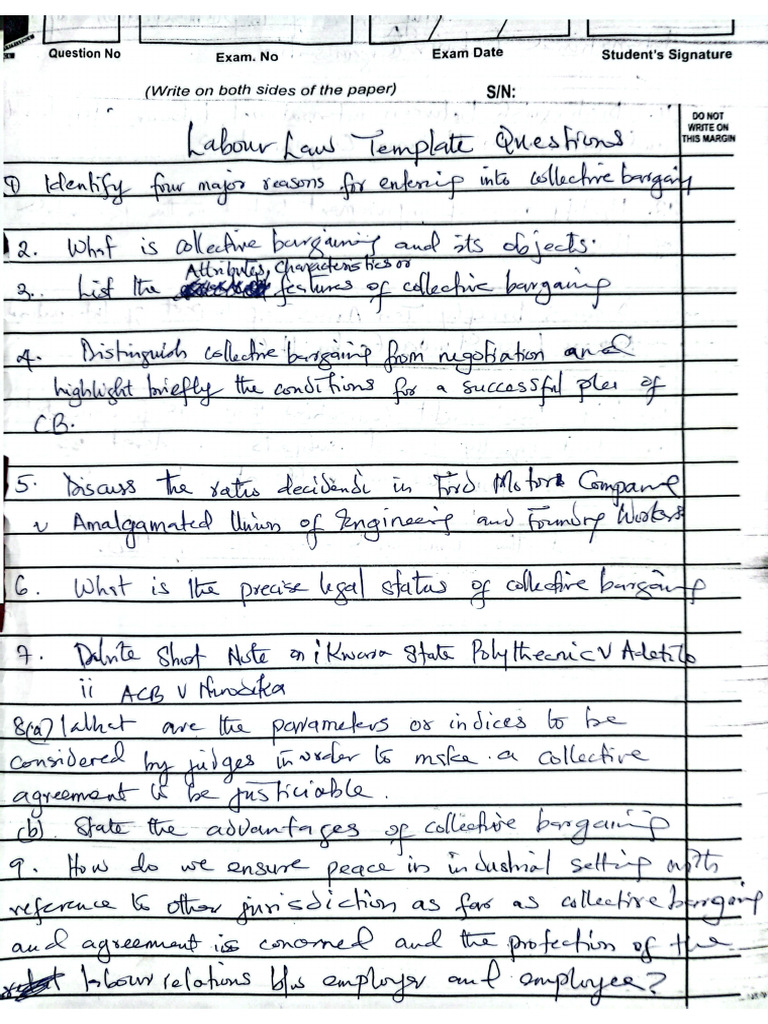 Question No
Exam. No
Exam Date
Student's Signature
(Write on both sides of the paper)
S/N:
DO NOT
WRITE ON
THIS MARGIN
Labour Law Template Questions
1) Identify four major reasons for entering into collective bargaing
2. What is collective bargaining and its objects.
Attributes, Characteristics or
3. List the features of collective bargaining
4. Distinguish collective bargaing from negotiation and
highlight briefly the conditions for a successful plea of
CB.
5. Discuss the ratio decidendi in Ford Motors Company
v Amalgamated Union of Engineering and Foundry Workers
6. What is the precise legal status of collective bargaing
7. Short Note on i Kwara State Polythecnic V Adetilo
ii ACB V
8(a) What are the parameters or indices to be
considered by judges in order to make a collective
agreement to be justiciable.
(b). State the advantages of collective bargaining
9. How do we ensure peace in industrial setting with
reference to other jurisdiction as far as collective bargaing
and agreement is concerned and the protection of the
labour relations b/w employer and employee?